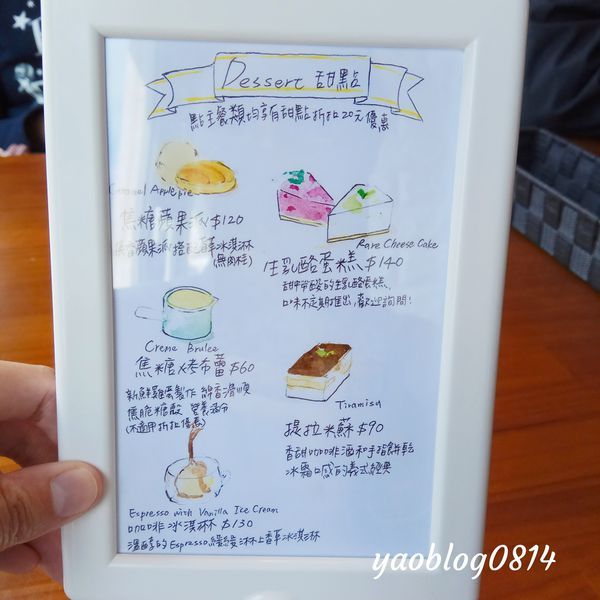 Dessert 甜點
點主餐類均享有甜點折扣20元優惠
Caramel Apple pie
焦糖蘋果派 $120
焦香蘋果派搭配香草冰淇淋
(無肉桂)
Rare Cheese Cake
生乳酪蛋糕 $140
甜中帶酸的生乳酪蛋糕,
口味不定期推出,歡迎詢問!
Creme Brulee
焦糖烤布蕾 $60
新鮮雞蛋製作 綿香滑順
焦脆糖殼 營養滿分
(不適用折扣優惠)
Tiramisu
提拉米蘇 $90
香甜咖啡酒和手指餅乾
冰霜口感的義式經典
Espresso with Vanilla Ice Cream
咖啡冰淇淋 $130
溫醇的Espresso緩緩淋上香草冰淇淋
yaoblog0814